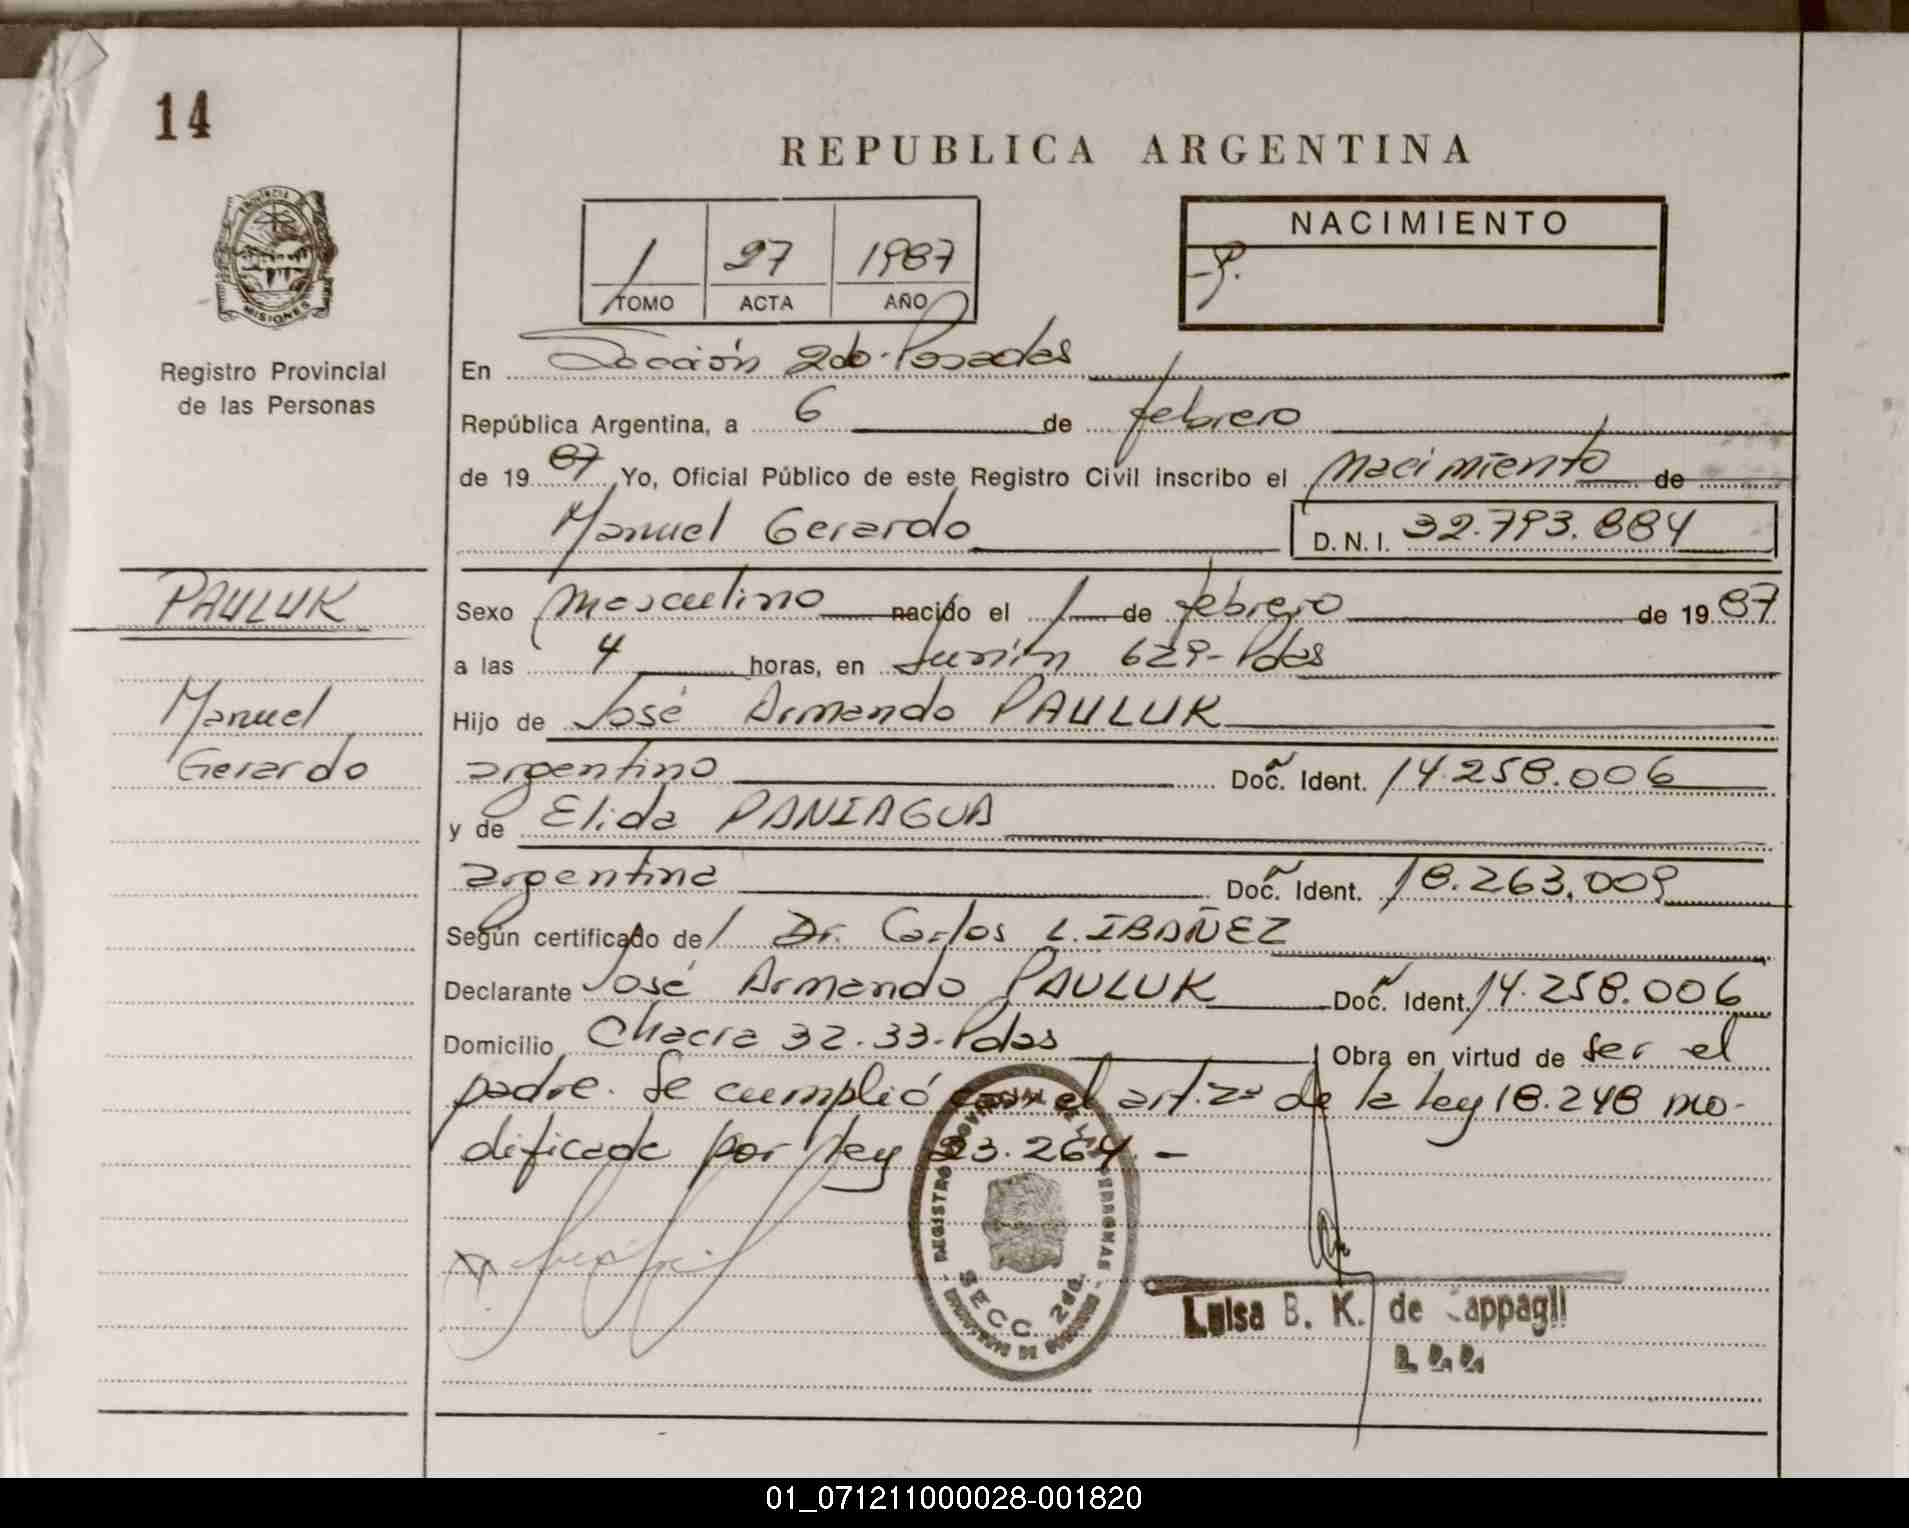 14
REPUBLICA ARGENTINA
NACIMIENTO
1 27 1987
TOMO ACTA AÑO
PROVINCIA DE
MISIONES
Registro Provincial
de las Personas
En Sección 2do. Posadas
República Argentina, a 6 de febrero
de 1987 Yo, Oficial Público de este Registro Civil inscribo el Nacimiento de
Manuel Gerardo D. N. I. 32.793.884
PAULUK
Manuel
Gerardo
Sexo Masculino nacido el 1 de febrero de 1987
a las 4 horas, en Junín 629-Pdas
Hijo de José Armando PAULUK
argentino Doc. Ident. 14.258.006
y de Elida PANIAGUA
argentina Doc. Ident. 18.263.009
Según certificado del Dr. Carlos L. IBAÑEZ
Declarante José Armando PAULUK Doc. Ident. 14.258.006
Domicilio Chacra 32.33-Pdas Obra en virtud de ser el
padre. Se cumplió con el art. 2º de la ley 18.248 mo-
dificada por ley 23.264 -
REGISTRO PROVINCIAL DE LAS PERSONAS
SECC 2da.
Luisa B. K. de Zappagli
01_071211000028-001820